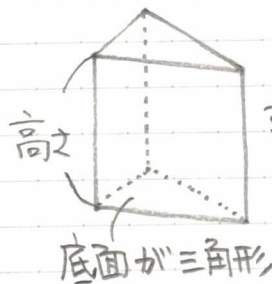 高さ
底面が三角形